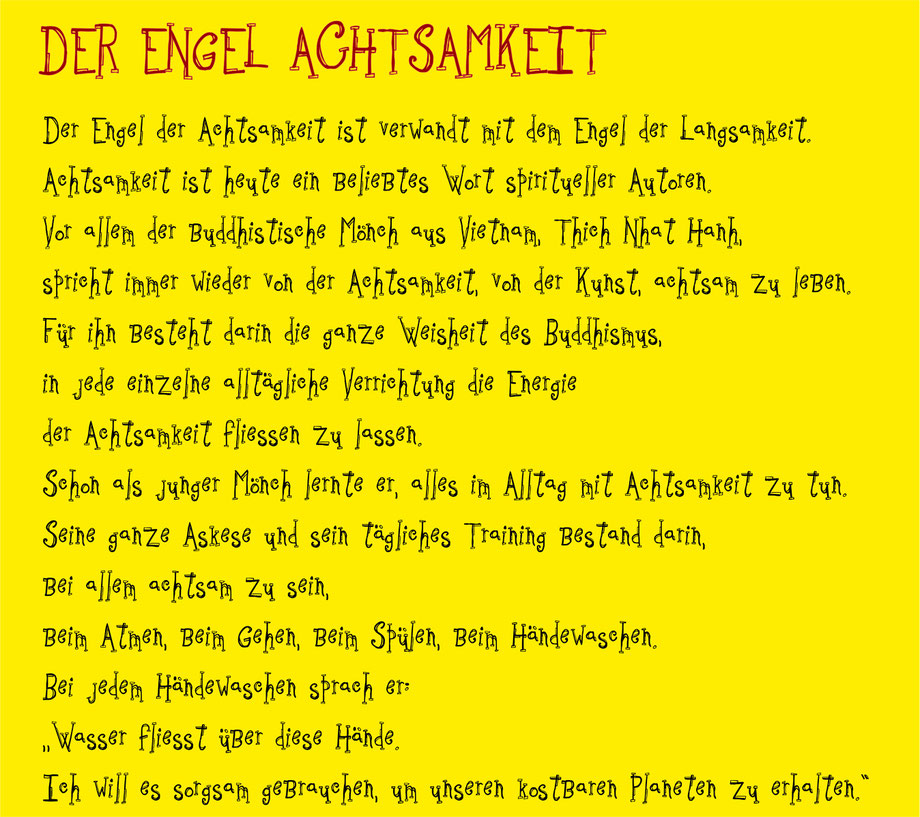 DER ENGEL ACHTSAMKEIT
Der Engel der Achtsamkeit ist verwandt mit dem Engel der Langsamkeit.
Achtsamkeit ist heute ein beliebtes Wort spiritueller Autoren.
Vor allem der buddhistische Mönch aus Vietnam, Thich Nhat Hanh,
spricht immer wieder von der Achtsamkeit, von der Kunst, achtsam zu leben.
Für ihn besteht darin die ganze Weisheit des Buddhismus,
in jede einzelne alltägliche Verrichtung die Energie
der Achtsamkeit fliessen zu lassen.
Schon als junger Mönch lernte er, alles im Alltag mit Achtsamkeit zu tun.
Seine ganze Askese und sein tägliches Training bestand darin,
bei allem achtsam zu sein,
beim Atmen, beim Gehen, beim Spülen, beim Händewaschen.
Bei jedem Händewaschen sprach er:
„Wasser fliesst über diese Hände.
Ich will es sorgsam gebrauchen, um unseren kostbaren Planeten zu erhalten.“